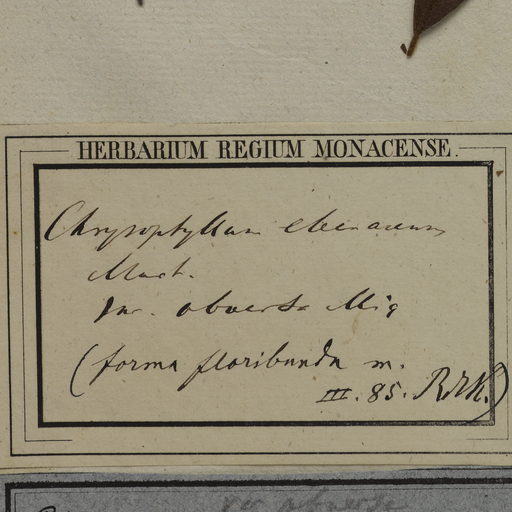 HERBARIUM REGIUM MONACENSE.
Chrysophyllum ebenaceum
Mart.
var. obversa Miq
(forma floribunda m.
III. 85. Rdlk.)
var obversa